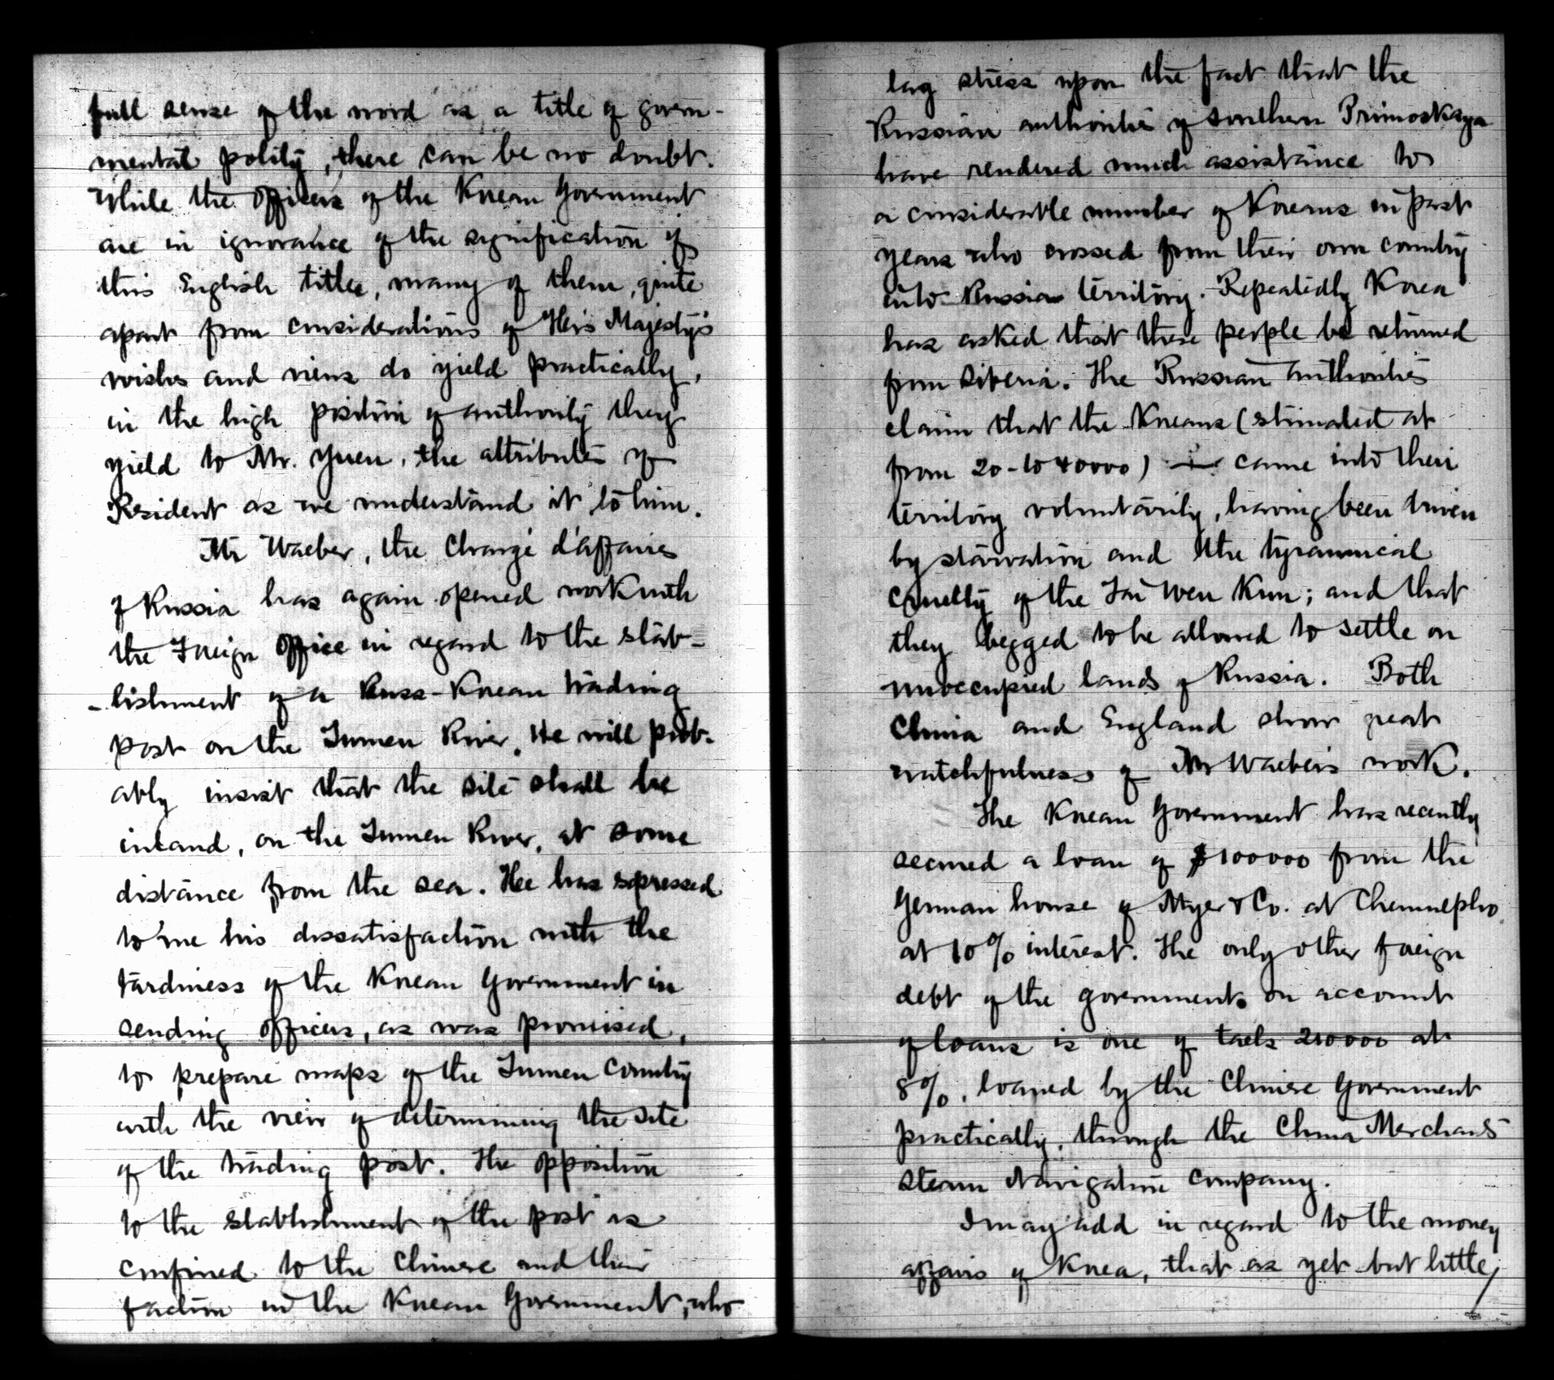 full sense of the word as a title of govern-
mental polity, there can be no doubt.
While the officers of the Korean Government
are in ignorance of the signification of
this English title, many of them, quite
apart from considerations of His Majesty's
wishes and views do yield practically,
in the high position of authority they
yield to Mr. Yuen, the attributes of
Resident as we understand it to him.
Mr Waeber, the Chargé d'affaires
of Russia has again opened work with
the Foreign Office in regard to the estab-
-lishment of a Russo-Korean trading
post on the Tumen River. He will prob-
ably insist that the site shall be
inland, on the Tumen River, at some
distance from the sea. He has expressed
to me his dissatisfaction with the
tardiness of the Korean Government in
sending officers, as was promised,
to prepare maps of the Tumen Country
with the view of determining the site
of the trading post. The opposition
to the establishment of the post is
confined to the Chinese and their
faction in the Korean Government, who
lay stress upon the fact that the
Russian authorities of Southern Primorskaya
have rendered much assistance to
a considerable number of Koreans in past
years who crossed from their own country
into Russian territory. Repeatedly Korea
has asked that these people be returned
from Siberia. The Russian authorities
claim that the Koreans (estimated at
from 20-to 40000) came into their
territory voluntarily, having been driven
by starvation and the tyrannical
cruelty of the Tai Wen Kun; and that
they begged to be allowed to settle on
unoccupied lands of Russia. Both
China and England show great
watchfulness of Mr Waeber's work.
The Korean Government has recently
secured a loan of $100000 from the
German house of Myer & Co. at Chemulpho
at 10% interest. The only other foreign
debt of the governments on account
of loans is one of taels 210000 at
8%, loaned by the Chinese Government
practically, through the China Merchants
Steam Navigation Company.
I may add in regard to the money
affairs of Korea, that as yet but little